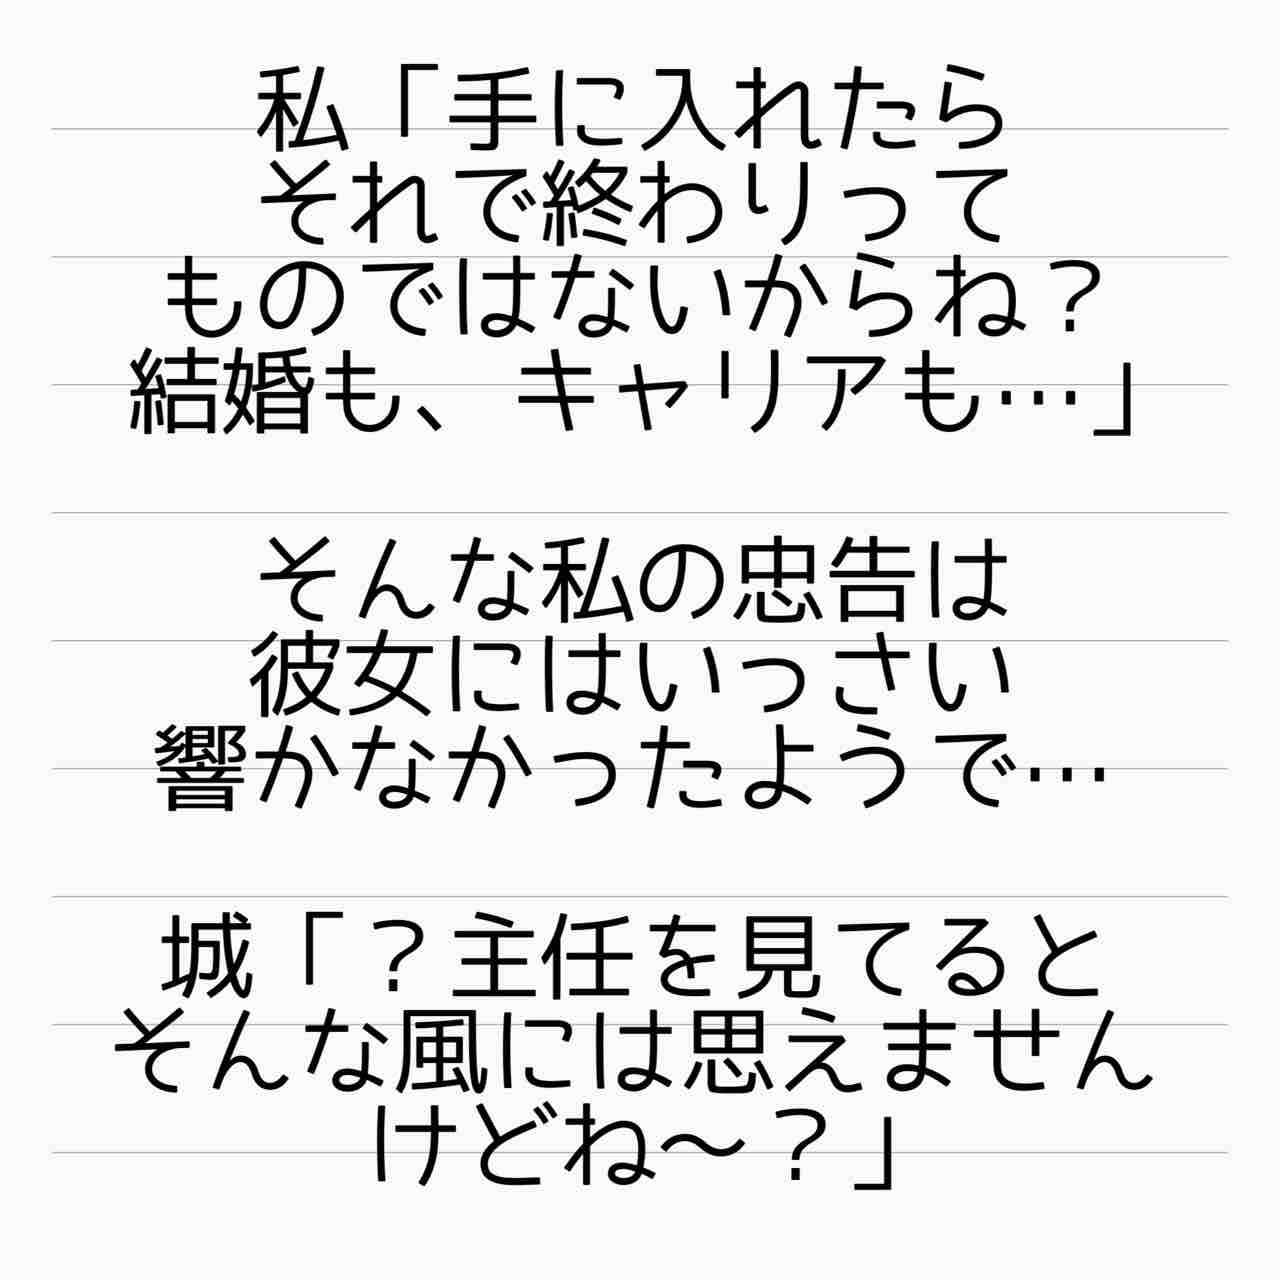 私「手に入れたら
それで終わりって
ものではないからね？
結婚も、キャリアも…」
そんな私の忠告は
彼女にはいっさい
響かなかったようで…
城「？主任を見てると
そんな風には思えません
けどね〜？」